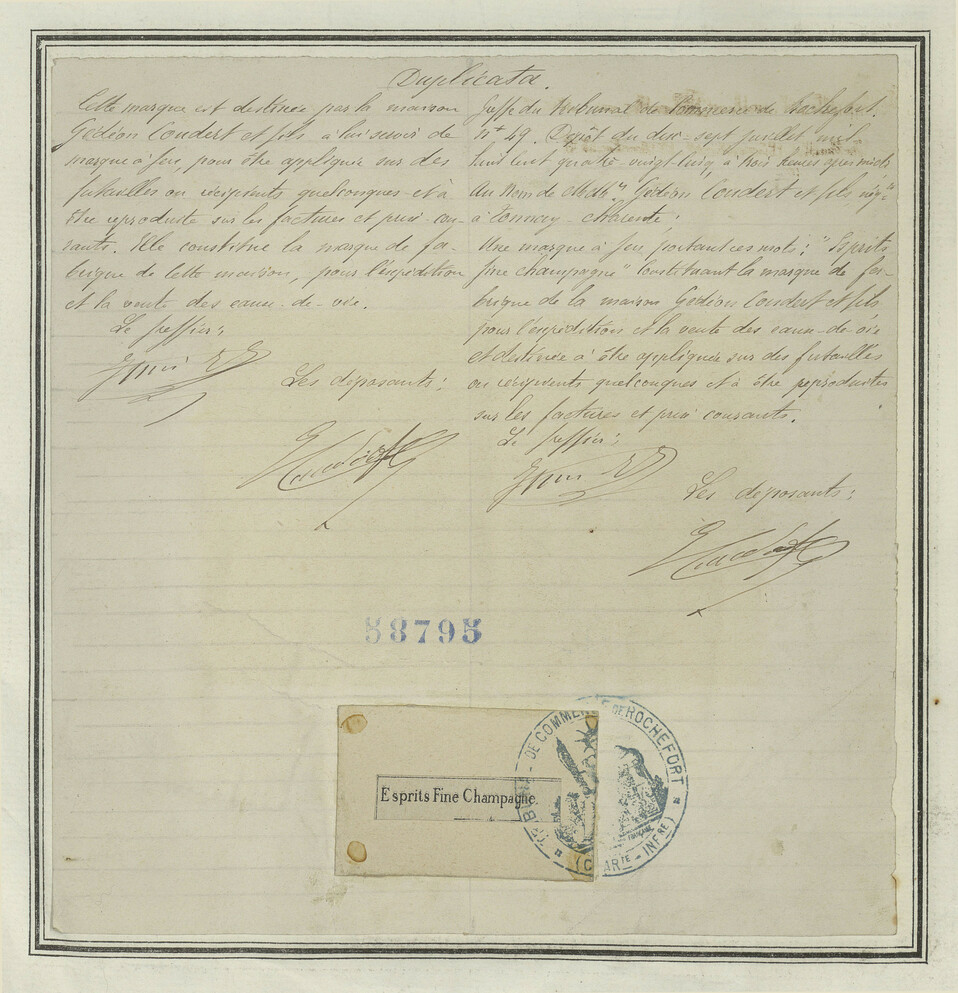 Duplicata.
Cette marque est destinée par la maison
Gédéon Coudert et fils à lui servir de
marque à feu, pour être appliquée sur des
futailles ou récipients quelconques et à
être reproduite sur les factures et prix-cou-
rants. Elle constitue la marque de fa-
brique de cette maison, pour l'expédition
et la vente des eaux-de-vie.
Le greffier:
Les déposants:
Greffe du Tribunal de Commerce de Rochefort.
N° 49. Dépôt du dix-sept juillet mil
huit cent quatre-vingt-cinq, à trois heures après midi
au nom de Gédéon Coudert et fils
à Tonnay-Charente:
Une marque à feu portant ces mots: "Esprits
fine champagne" constituant la marque de fa-
brique de la maison Gédéon Coudert et fils
pour l'expédition et la vente des eaux-de-vie
et destinée à être appliquée sur des futailles
ou récipients quelconques et à être reproduites
sur les factures et prix courants.
Le greffier:
Les déposants:
58795
Esprits Fine Champagne
DE COMMERCE DE ROCHEFORT
INFRE)